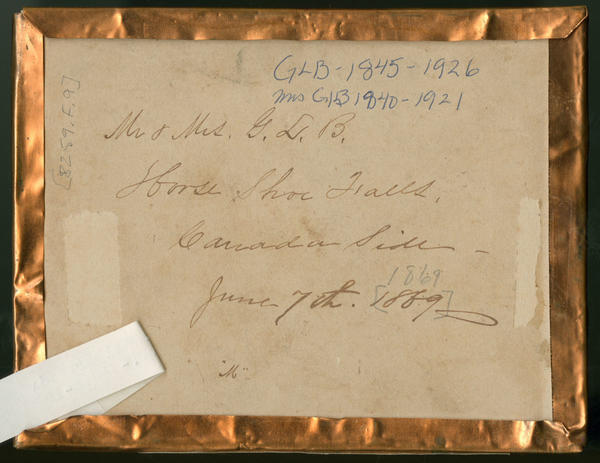 GLB - 1845 - 1926
Mrs GLB 1840 - 1921
Mr & Mrs. G. L. B.
Horse Shoe Falls,
Canada Side -
1869
June 7th. [1869]
"M"
[8289.F.9]